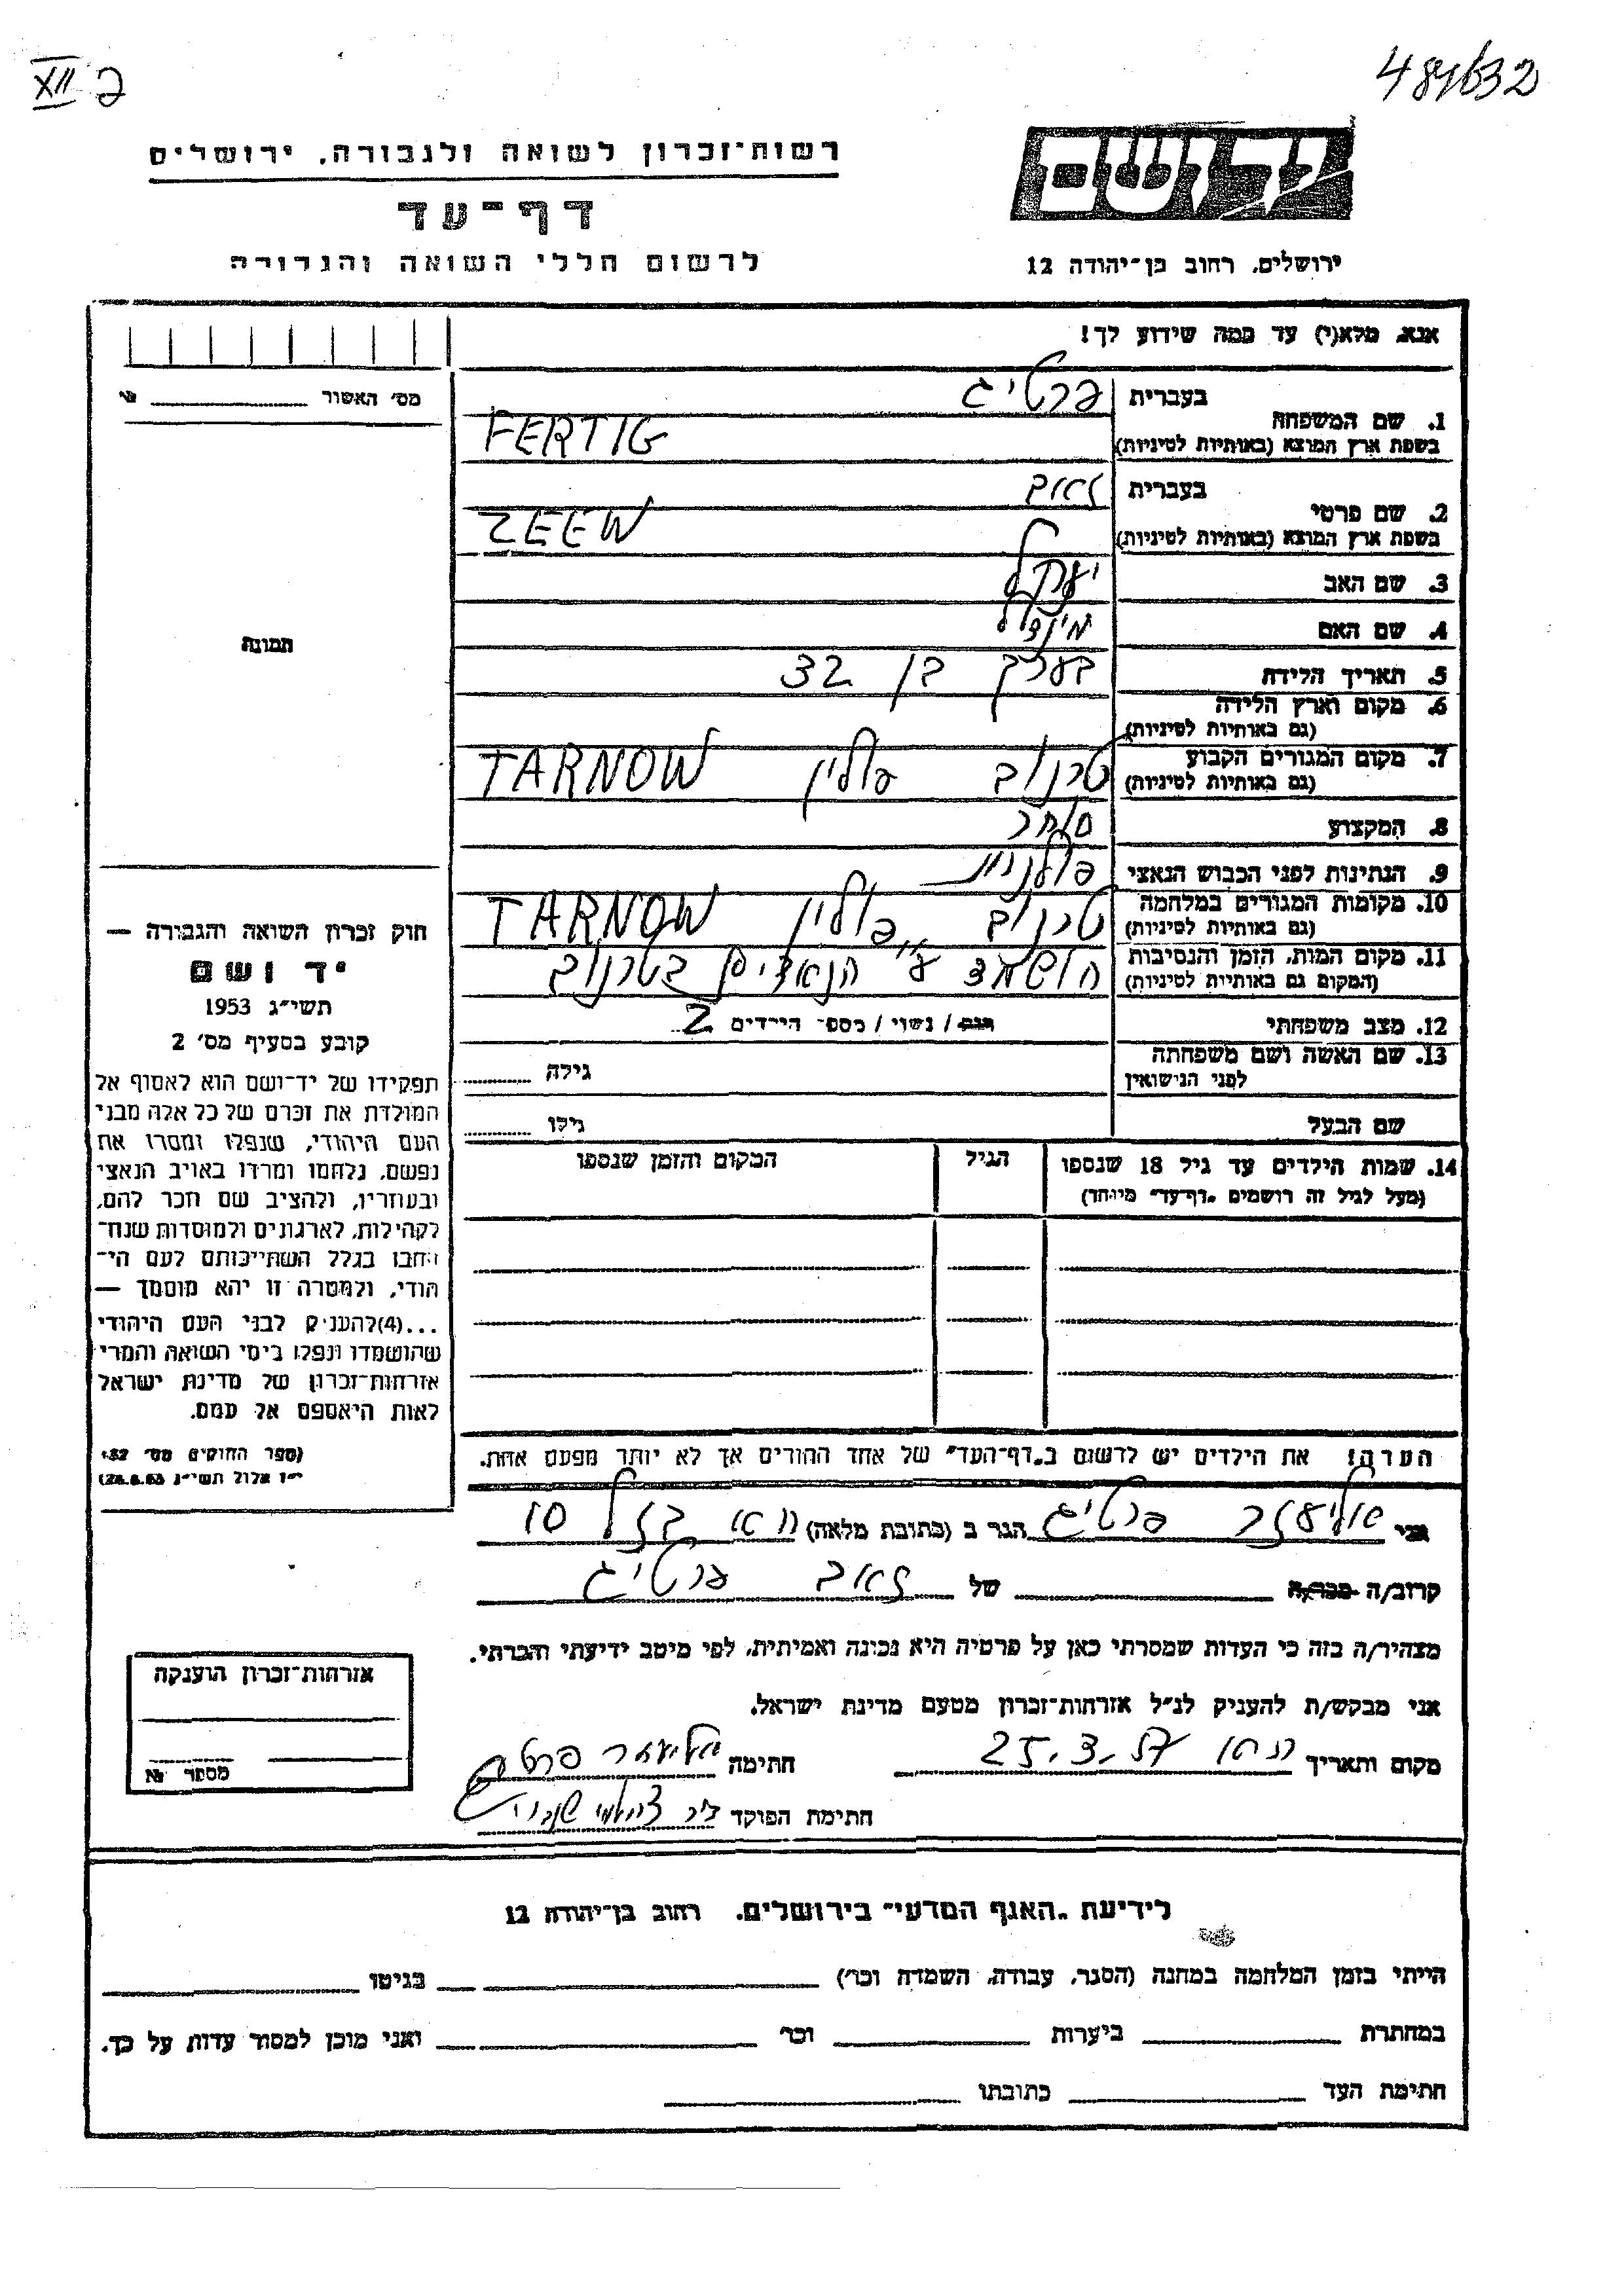 XII 2
רשות־זכרון לשואה ולגבורה, ירושלים
דף־עד
לרשום חללי השואה והגבורה
יד ושם
ירושלים, רחוב בן־יהודה 12
אנא, מלא(י) עד כמה שידוע לך!
מס׳ האשור
1. שם המשפחה בעברית פרטיג
בשפת ארץ המוצא (באותיות לטיניות) FERTIG
2. שם פרטי בעברית זאב
בשפת ארץ המוצא (באותיות לטיניות) ZEEW
3. שם האב
4. שם האם
5. תאריך הלידה בערך בן 32
6. מקום וארץ הלידה
(גם באותיות לטיניות)
7. מקום המגורים הקבוע טרנוב פולין TARNOW
(גם באותיות לטיניות)
8. המקצוע סוחר
9. הנתינות לפני הכבוש הנאצי פולנית
10. מקומות המגורים במלחמה טרנוב פולין TARNOW
(גם באותיות לטיניות)
11. מקום המות, הזמן והנסיבות הושמד ע״י הנאצים בטרנוב
(המקום גם באותיות לטיניות)
12. מצב משפחתי רווק / נשוי / מספר הילדים 2
13. שם האשה ושם משפחתה גילה
לפני הנישואין
שם הבעל גילו
14. שמות הילדים עד גיל 18 שנספו הגיל המקום והזמן שנספו
(מעל לגיל זה רושמים „דף־עד״ מיוחד)
הערה! את הילדים יש לרשום ב„דף־העד״ של אחד ההורים אך לא יותר מפעם אחת.
תמונה
חוק זכרון השואה והגבורה —
יד ושם
תשי״ג 1953
קובע בסעיף מס׳ 2
תפקידו של יד־ושם הוא לאסוף אל
המולדת את זכרם של כל אלה מבני
העם היהודי, שנפלו ומסרו את
נפשם, נלחמו ומרדו באויב הנאצי
ובעוזריו, ולהציב שם וזכר להם,
לקהילות, לארגונים ולמוסדות שנח־
רבו בגלל השתייכותם לעם הי־
הודי, ולמטרה זו יהא מוסמך —
...(4)להעניק לבני העם היהודי
שהושמדו ונפלו בימי השואה והמרי
אזרחות־זכרון של מדינת ישראל
לאות היאספם אל עמם.
(ספר החוקים מס׳ 132
י״ז אלול תשי״ג 28.8.53)
אני אליעזר פרטיג הגר ב (כתובת מלאה)
קרוב/ה מכר/ה של זאב פרטיג
מצהיר/ה בזה כי העדות שמסרתי כאן על פרטיה היא נכונה ואמיתית, לפי מיטב ידיעתי והכרתי.
אני מבקש/ת להעניק לנ״ל אזרחות־זכרון מטעם מדינת ישראל.
מקום ותאריך 25.3.57 חתימה אליעזר פרטיג
חתימת הפוקד
אזרחות־זכרון הוענקה
מספר №
לידיעת „האגף המדעי״ בירושלים, רחוב בן־יהודה 12
הייתי בזמן המלחמה במחנה (הסגר, עבודה, השמדה וכר׳) בגיטו
במחתרת ביערות וכר׳ ואני מוכן למסור עדות על כך.
חתימת העד כתובתו